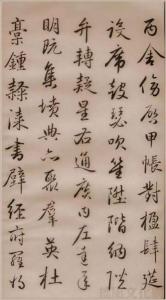 丙舍傍啟甲帳對楹肆筵
設席鼓瑟吹笙陞階納陛
弁轉疑星右通廣內左達承
明既集墳典亦聚羣英杜
藁鍾隸漆書壁經府羅將